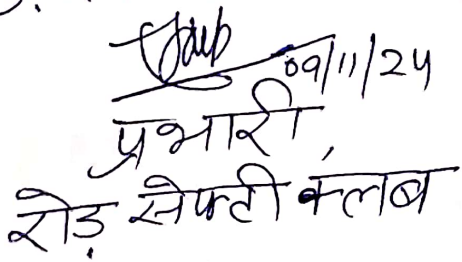 09/11/24
प्रभारी,
रोड़ सेफ्टी क्लब